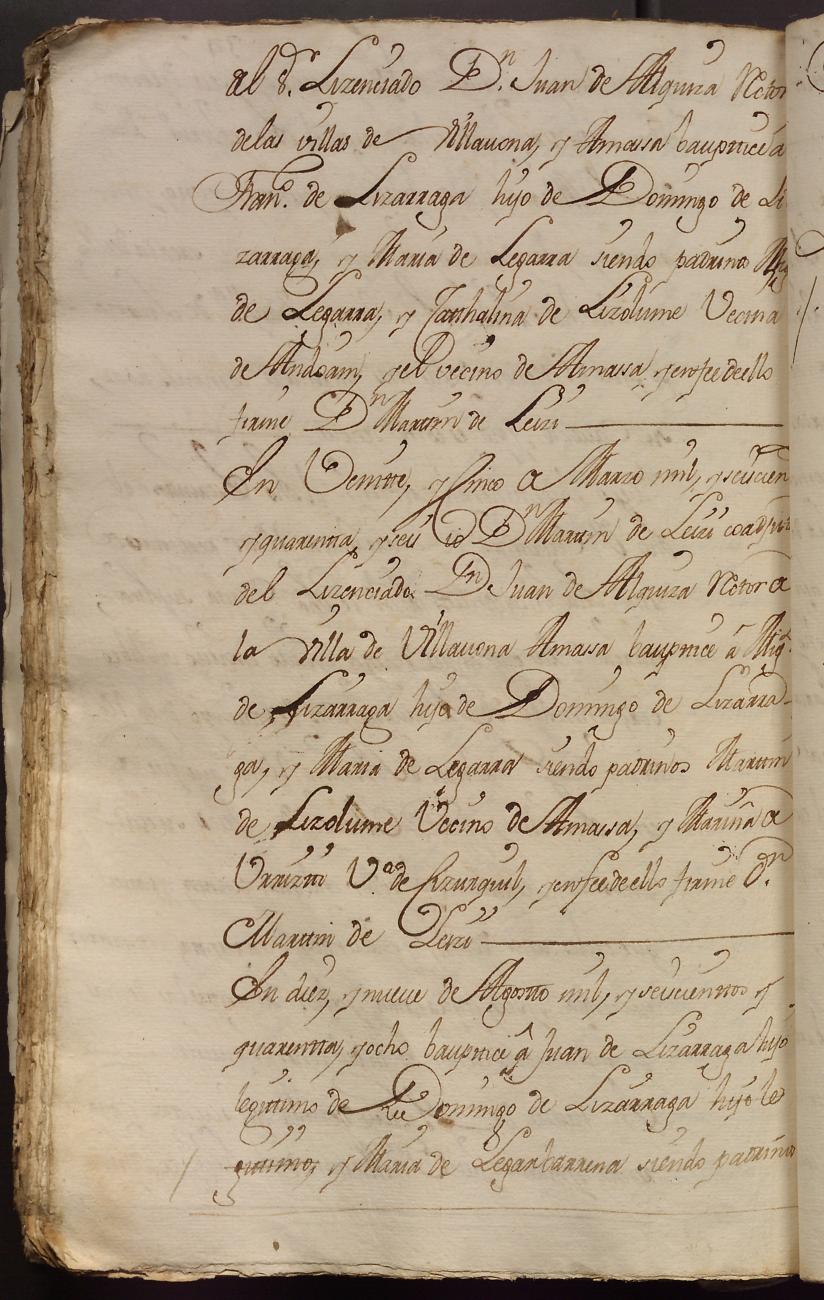 al S.r Lizenciado D.n Juan de Alquiza Retor
de las villas de Villavona, y Amassa bauptice a
Fran.co de Lizarraga hijo de Domingo de Li
zarraga, y Maria de Legarra siendo padrino Mig
de Legarra, y Cathalina de Lizolume Vecina
de Andoain, y el vecino de Amassa, y en fee de ello
firme D.n Martin de Leizi
En Veintte, y Cinco a Marzo mil, y seiscien
y quarentta, y seis io D.n Martin de Leizi coadjut
del Lizenciado D.n Juan de Alquiza Retor a
la villa de Villavona Amassa bauptice â Mig.l
de Lizarraga hijo de Domingo de Lizarra
ga, y Maria de Legarra siendo padrinos Martin
de Lizolume Vecino de Amassa, y Marina a
Urrizti V.a de Cizurquil, y en fee de ello firme D.n
Martin de Leizi
En diez, y nueve de Agostto mil, y seiscienttos y
quarentta, y ocho bauptice â Juan de Lizarraga hijo
legittimo de Domingo de Lizarraga hijo le
gittimo, y Maria de Legarbarrena siendo padrino